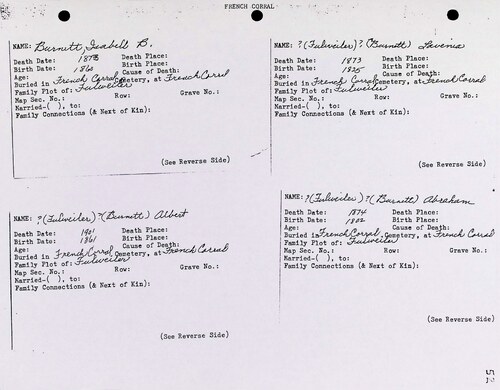 FRENCH CORRAL
NAME: Burnett, Isabell B.
Death Date: 1873 Death Place:
Birth Date: 1860 Birth Place:
Age: Cause of Death:
Buried in French Corral Cemetery, at French Corral
Family Plot of: Fulweiler
Map Sec. No.: Row: Grave No.:
Married-( ), to:
Family Connections (& Next of Kin):
(See Reverse Side)
NAME: ?(Fulweiler)?(Burnett) Lavenia
Death Date: 1873 Death Place:
Birth Date: 1825 Birth Place:
Age: Cause of Death:
Buried in French Corral Cemetery, at French Corral
Family Plot of: Fulweiler
Map Sec. No.: Row: Grave No.:
Married-( ), to:
Family Connections (& Next of Kin):
(See Reverse Side)
NAME: ?(Fulweiler)?(Burnett) Albert
Death Date: 1901 Death Place:
Birth Date: 1861 Birth Place:
Age: Cause of Death:
Buried in French Corral Cemetery, at French Corral
Family Plot of: Fulweiler
Map Sec. No.: Row: Grave No.:
Married-( ), to:
Family Connections (& Next of Kin):
(See Reverse Side)
NAME: ?(Fulweiler)?(Burnett) Abraham
Death Date: 1874 Death Place:
Birth Date: 1802 Birth Place:
Age: Cause of Death:
Buried in French Corral Cemetery, at French Corral
Family Plot of: Fulweiler
Map Sec. No.: Row: Grave No.:
Married-( ), to:
Family Connections (& Next of Kin):
(See Reverse Side)